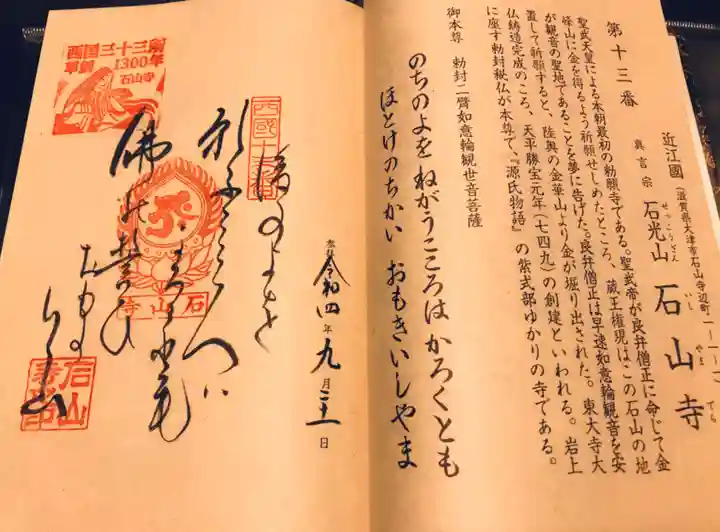 第十三番
近江國
(滋賀県大津市石山寺辺町一-一-一)
真言宗
石光山 石山寺
せっこうざん いし やま でら
聖武天皇による本朝最初の勅願寺である。聖武帝が良弁僧正に命じて金
峰山に金を得るよう祈願せしめたところ、蔵王権現はこの石山の地
が観音の聖地であることを夢に告げた。良弁僧正は早速如意輪観音を安
置して祈願すると、陸奥の金華山より金が堀り出された。東大寺大
仏鋳造完成のころ、天平勝宝元年(七四九)の創建といわれる。岩上
に座す勅封秘仏が本尊で、『源氏物語』の紫式部ゆかりの寺である。
御本尊 勅封二臂如意輪観世音菩薩
のちのよを ねがうこころは かろくとも
ほとけのちかい おもきいしやま
西国三十三所
草創1300年
石山寺
西國十三番
後のよを
佛の誓ひ
おもき
石山寺
令和四年九月三日